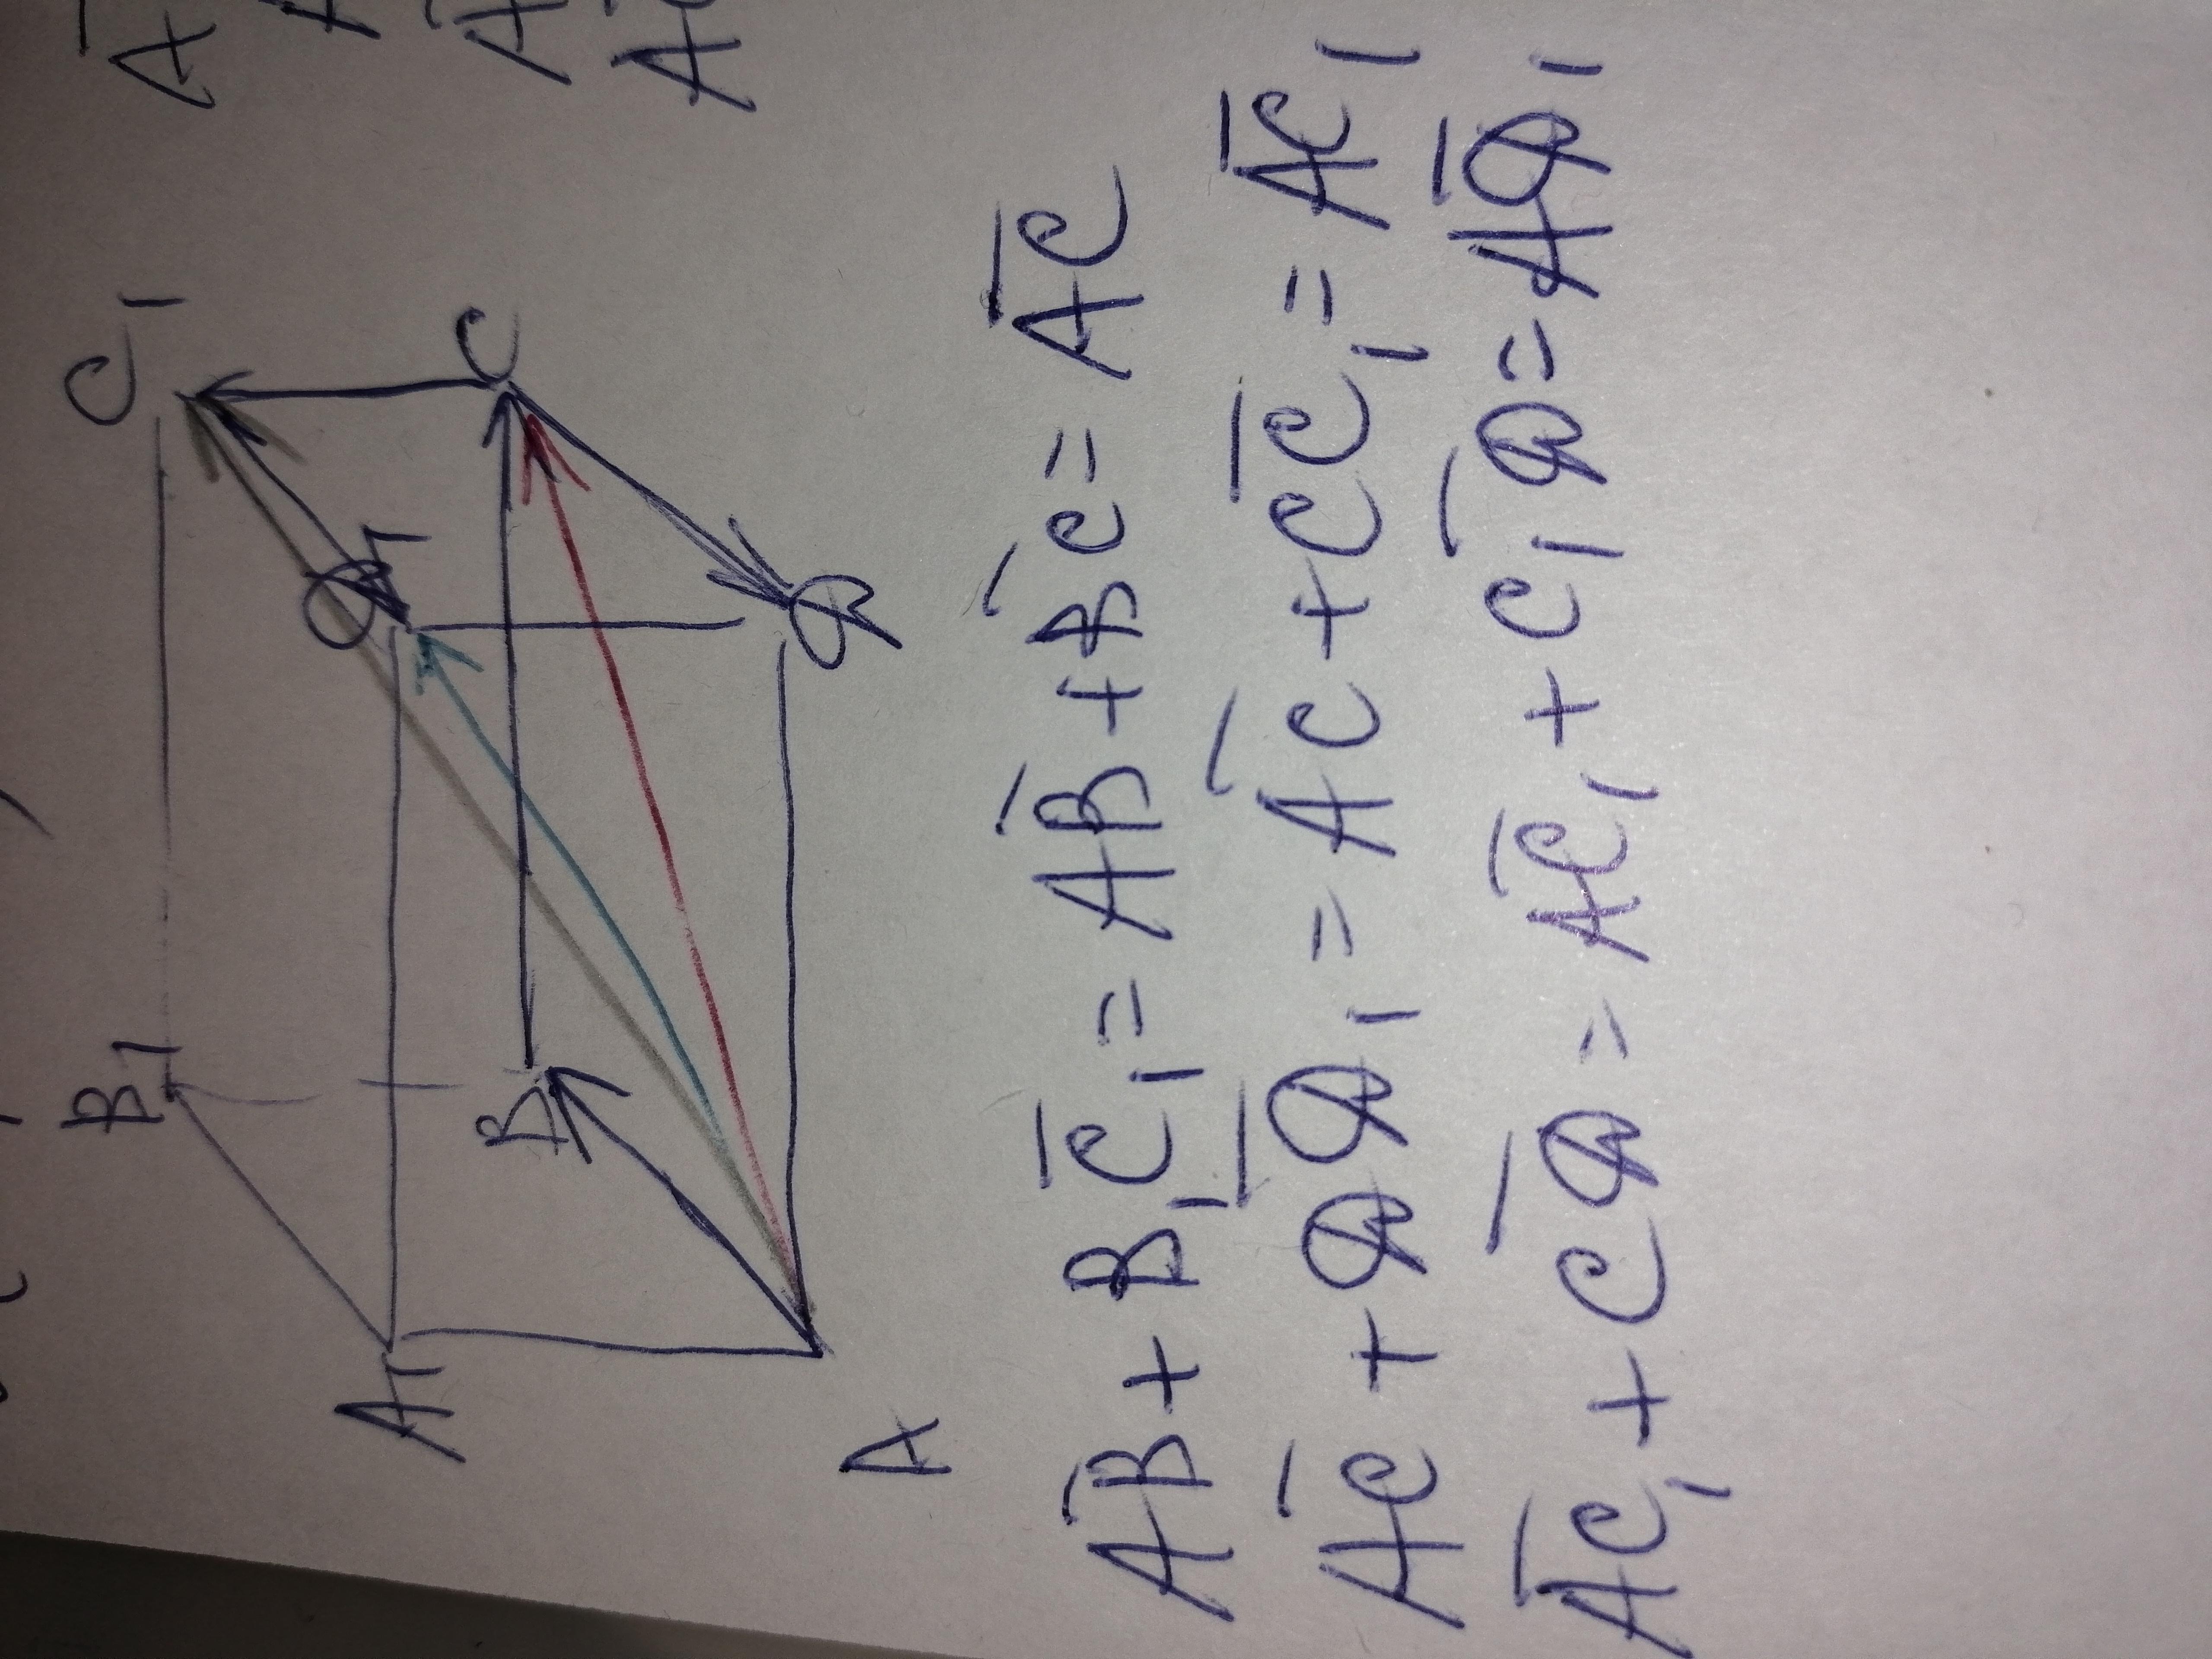 B₁ C₁
A₁ D₁
B C
A D
AB + B₁C₁ = AB + BC = AC
AC + DD₁ = AC + CC₁ = AC₁
AC₁ + CD = AC₁ + C₁D = AD₁